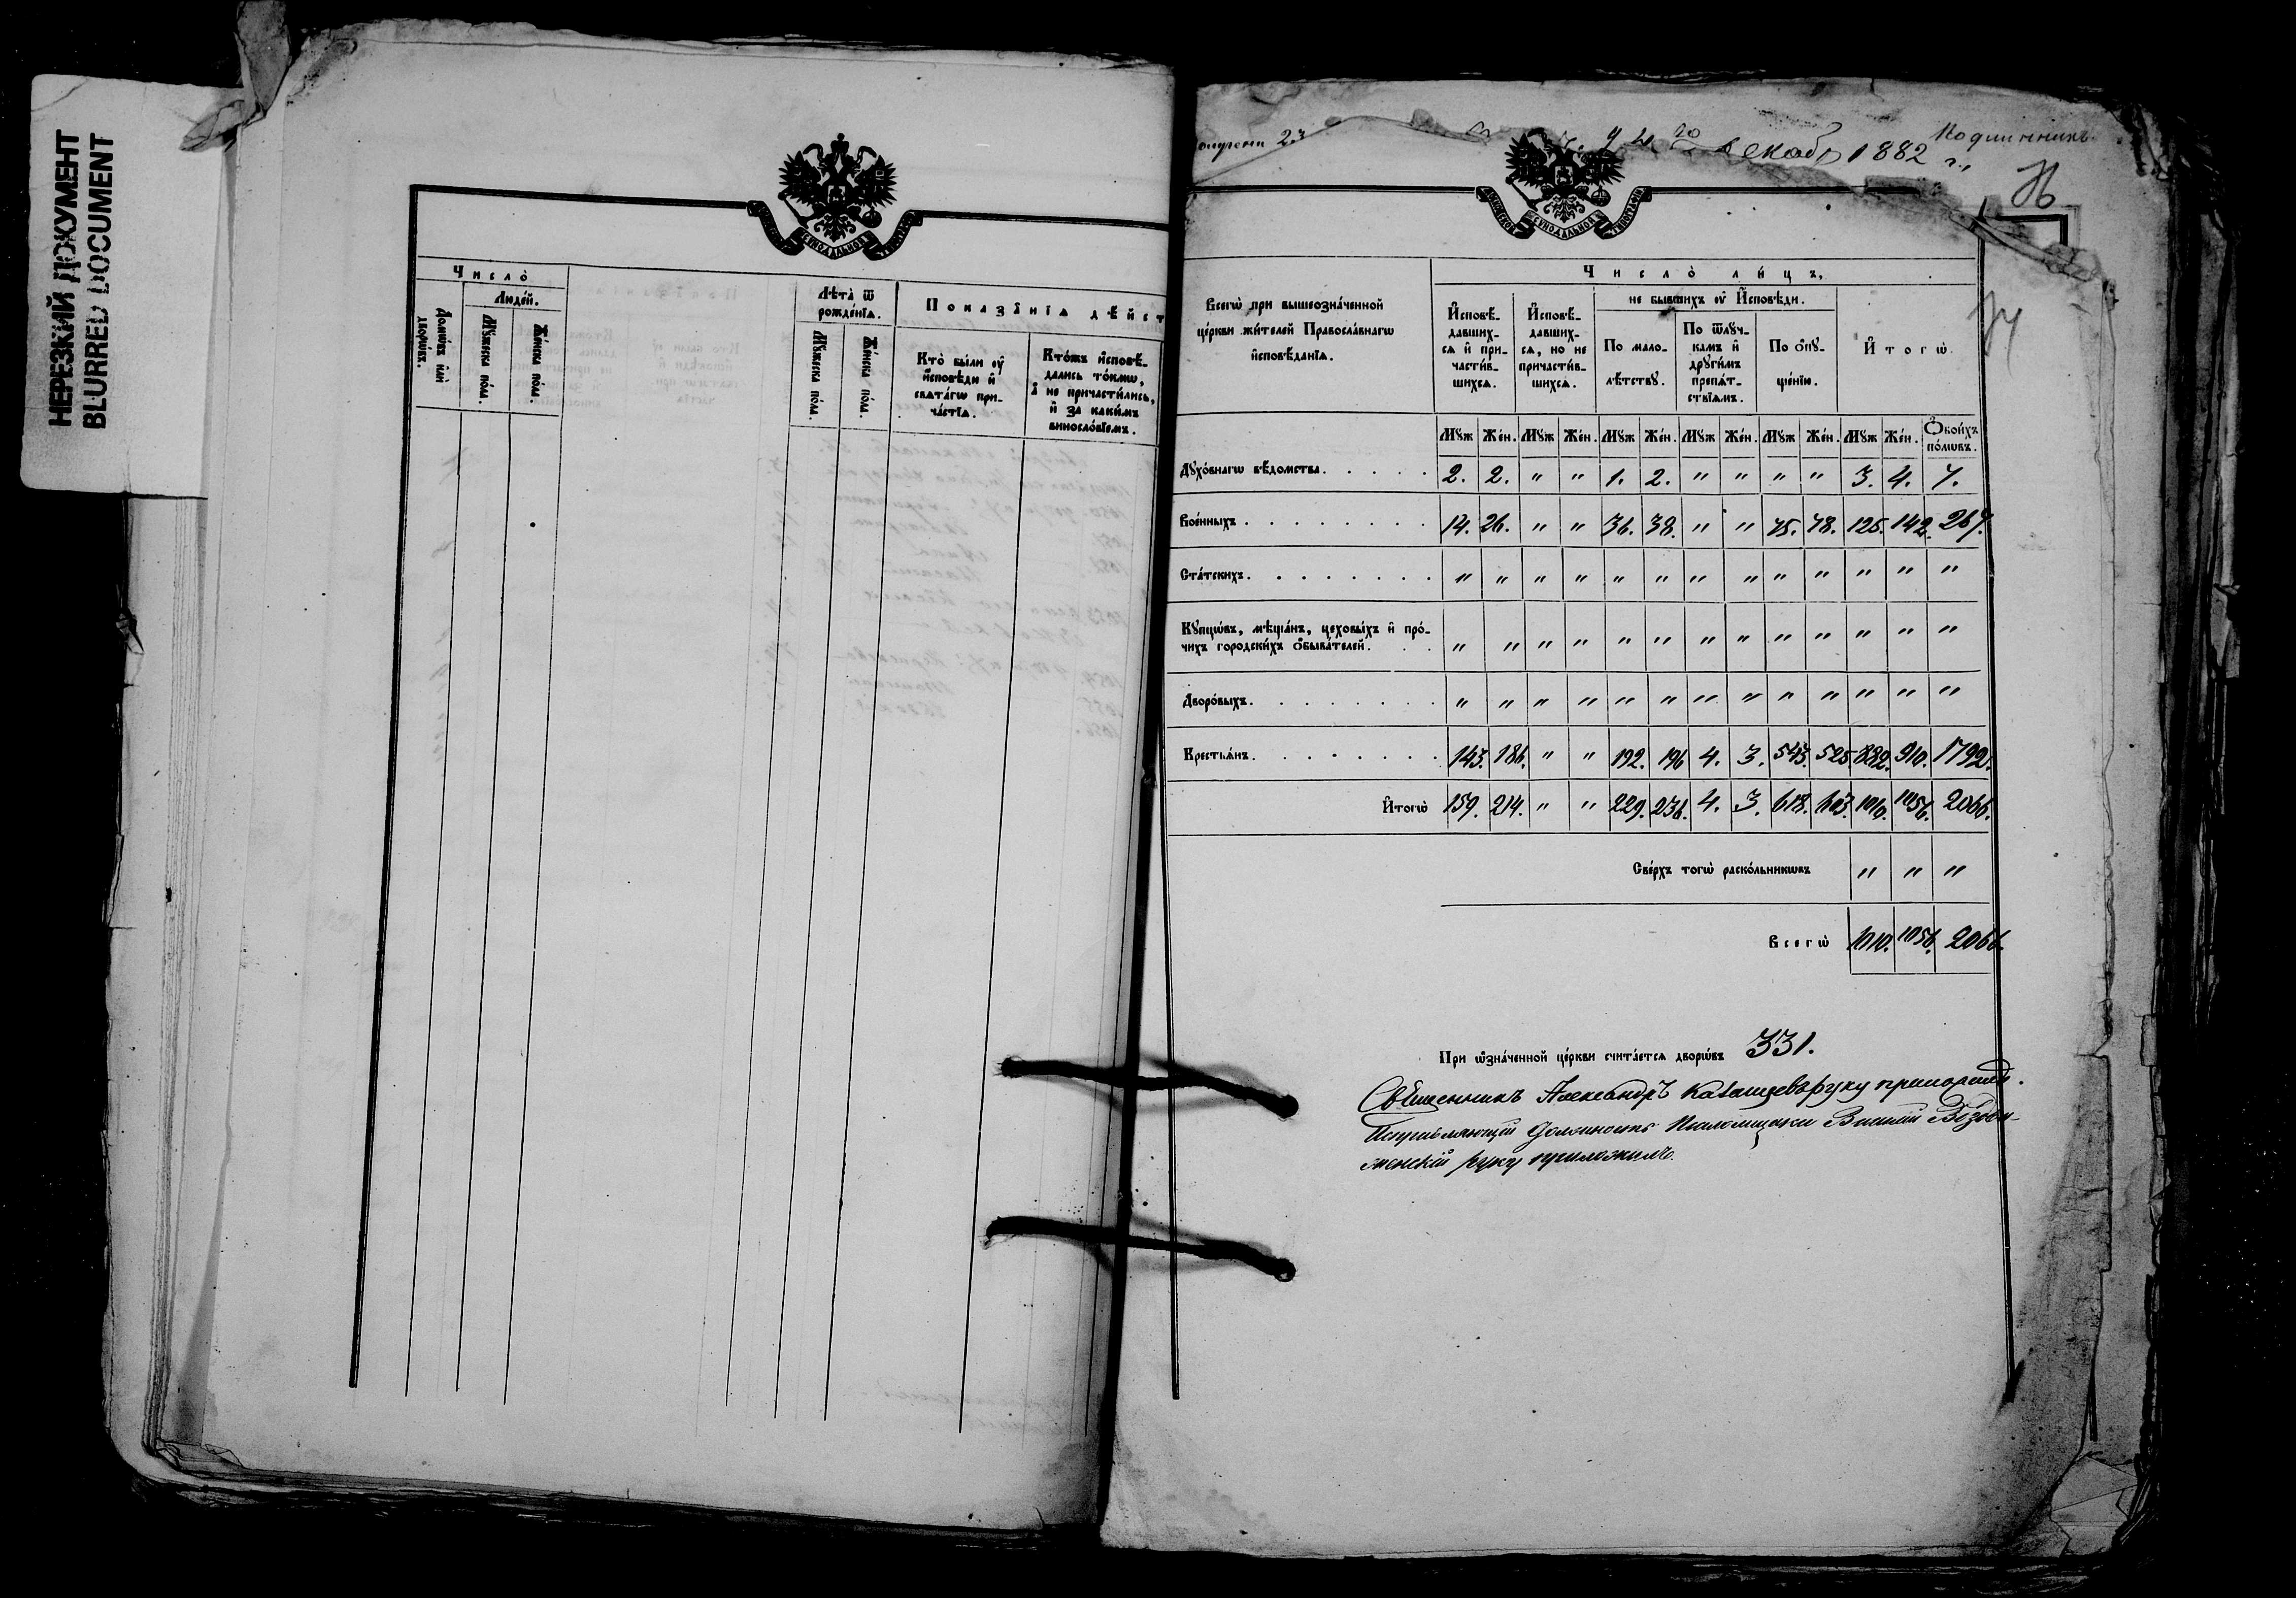 НЕРЕЗКИЙ ДОКУМЕНТ
BLURRED DOCUMENT
Число̀
Домѡ́въ и҆лѝ дворѡ́въ.
Люде́й.
Мꙋ́жеска по́ла.
Же́нска по́ла.
Лѣта̀ ѿ рожде́нїѧ.
Мꙋ́жеска по́ла.
Же́нска по́ла.
Показа̑нїѧ дѣ́йст
Кто̀ бы́ли ᲂу҆
и҆́сповѣди и҆
свѧта́гѡ при-
ча́стїѧ.
Кто́жъ и҆сповѣ́-
дались то́кмѡ,
а҆ не причасти́лись,
и҆ за каки́мъ
виносло́вїемъ.
декабр 1882 г.,
Подлинникъ
СѴНОДАЛЬНОЙ
СѴНОДАЛЬНОЙ
Всегѡ̀ при вышеозна́ченной
це́ркви жи́телей Правосла́внагѡ
и҆сповѣ́данїѧ.
Число̀ ли́цъ,
И҆сповѣ́-
давших-
сѧ и҆ при-
части́в-
шихсѧ.
И҆сповѣ́-
давших-
сѧ, но не
причасти́в-
шихсѧ.
не бывшихъ ᲂу҆ И҆́сповѣди.
По мало-
лѣ́тствꙋ.
По ѿлꙋч-
камъ и҆
дрꙋги́мъ
препѧ́т-
ствїѧмъ.
По ѻ҆пꙋ-
ще́нїю.
И҆тогѡ̀.
Мꙋж Же́н. Мꙋж Же́н. Мꙋж Же́н. Мꙋж Же́н. Мꙋж Же́н. Мꙋж Же́н. Ѻ҆бои́хъ по́лѡвъ.
Дꙋхо́внагѡ вѣ́домства. 2. 2. " " 1. 2. " " " " 3. 4. 7.
Вое́нныхъ 14. 26. " " 36. 38. " " 75. 78. 125. 142. 267.
Ста́тскихъ. " " " " " " " " " " " " "
Кꙋпцѡ́въ, мѣща́нъ, цеховы́хъ и҆ про́-
чихъ городски́хъ ѻ҆быва́телей. " " " " " " " " " " " " "
Дворо́выхъ. " " " " " " " " " " " " "
Крестьѧ́нъ. 143. 186. " " 192. 196 4. 3. 543. 525. 882. 910. 1792.
И҆тогѡ̀ 159. 214. " " 229. 236. 4. 3. 618. 603. 1010. 1056. 2066.
Све́рхъ тогѡ̀ раско́льникѡвъ " " "
Всегѡ̀ 1010. 1056. 2066.
При ѡ҆зна́ченной це́ркви счита́етсѧ дворѡ́въ 331.
Священникъ Александръ руку приложилъ.
Исправляющій должность Псаломщика Воздви-
женскій руку приложилъ.